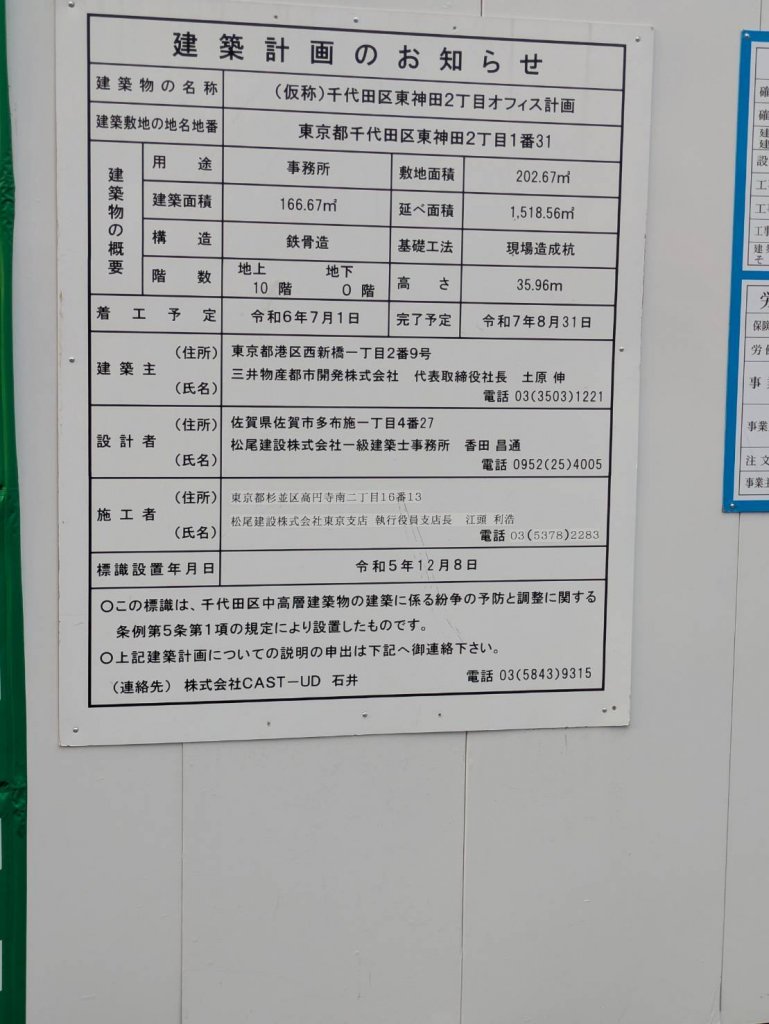 建築計画のお知らせ
建築物の名称 (仮称)千代田区東神田2丁目オフィス計画
建築敷地の地名地番 東京都千代田区東神田2丁目1番31
建築物の概要
用途 事務所 敷地面積 202.67㎡
建築面積 166.67㎡ 延べ面積 1,518.56㎡
構造 鉄骨造 基礎工法 現場造成杭
階数 地上 10階 地下 0階 高さ 35.96m
着工予定 令和6年7月1日 完了予定 令和7年8月31日
建築主 (住所) 東京都港区西新橋一丁目2番9号
(氏名) 三井物産都市開発株式会社 代表取締役社長 土原 伸
電話 03(3503)1221
設計者 (住所) 佐賀県佐賀市多布施一丁目4番27
(氏名) 松尾建設株式会社一級建築士事務所 香田 昌通
電話 0952(25)4005
施工者 (住所) 東京都杉並区高円寺南二丁目16番13
(氏名) 松尾建設株式会社東京支店 執行役員支店長 江頭 利浩
電話 03(5378)2283
標識設置年月日 令和5年12月8日
○この標識は、千代田区中高層建築物の建築に係る紛争の予防と調整に関する
条例第5条第1項の規定により設置したものです。
○上記建築計画についての説明の申出は下記へ御連絡下さい。
(連絡先) 株式会社CAST-UD 石井 電話 03(5843)9315
確
確
設
工
工
工事
建築
そ
保険
労働
事業
注文
事業主